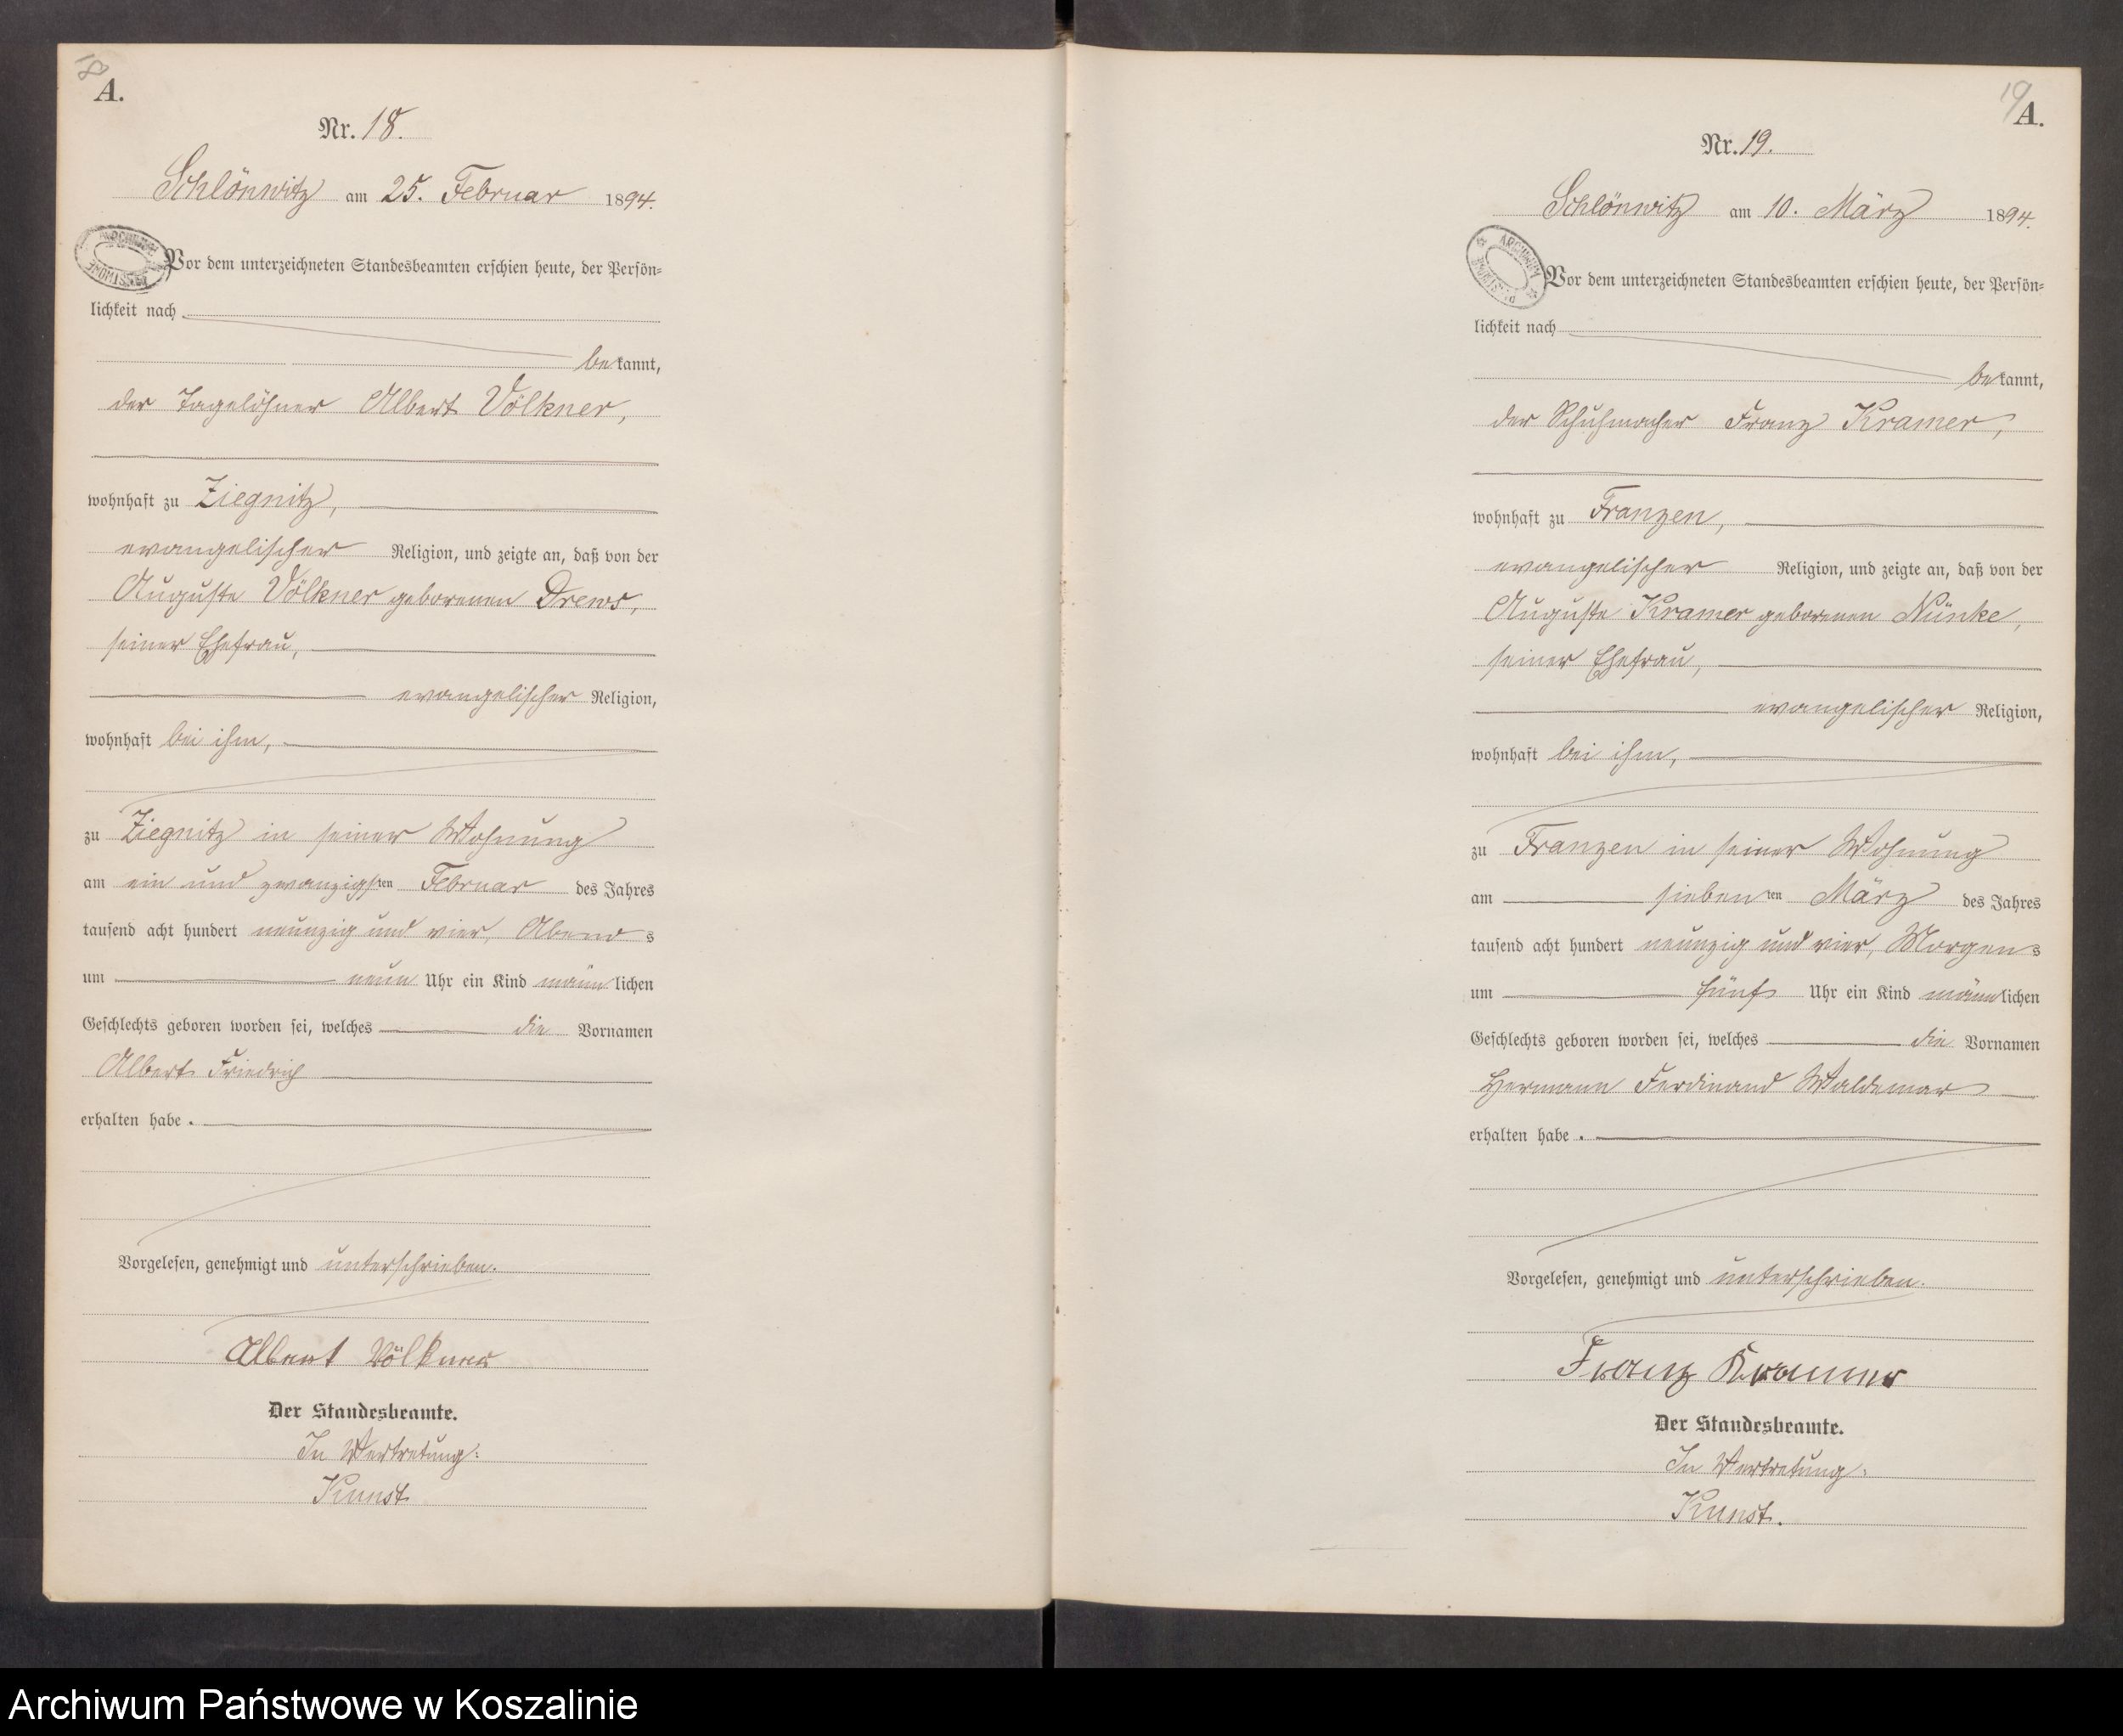 18
A.
Nr. 18.
Schlönwitz am 25. Februar 1894.
Vor dem unterzeichneten Standesbeamten erschien heute, der Persön-
lichkeit nach
bekannt,
der Tagelöhner Albert Völkner,
wohnhaft zu Ziegnitz,
evangelischer Religion, und zeigte an, daß von der
Auguste Völkner geborenen Drews,
seiner Ehefrau,
evangelischer Religion,
wohnhaft bei ihm,
zu Ziegnitz in seiner Wohnung
am ein und zwanzigsten Februar des Jahres
tausend acht hundert neunzig und vier, Abends
um neun Uhr ein Kind männlichen
Geschlechts geboren worden sei, welches die Vornamen
Albert Friedrich
erhalten habe.
Vorgelesen, genehmigt und unterschrieben.
Albert Völkner
Der Standesbeamte.
In Vertretung:
Kunst
19
A.
Nr. 19.
Schlönwitz am 10. März 1894.
ARCHIWUM PAŃSTWOWE
Vor dem unterzeichneten Standesbeamten erschien heute, der Persön-
lichkeit nach
bekannt,
der Schuhmacher Franz Kramer,
wohnhaft zu Franzen,
evangelischer Religion, und zeigte an, daß von der
Auguste Kramer geborenen Nünke,
seiner Ehefrau,
evangelischer Religion,
wohnhaft bei ihm,
zu Franzen in seiner Wohnung
am siebenten März des Jahres
tausend acht hundert neunzig und vier, Morgens
um fünf Uhr ein Kind männlichen
Geschlechts geboren worden sei, welches die Vornamen
Hermann Ferdinand Waldemar
erhalten habe.
Vorgelesen, genehmigt und unterschrieben.
Franz Kramer
Der Standesbeamte.
In Vertretung:
Kunst.
Archiwum Państwowe w Koszalinie